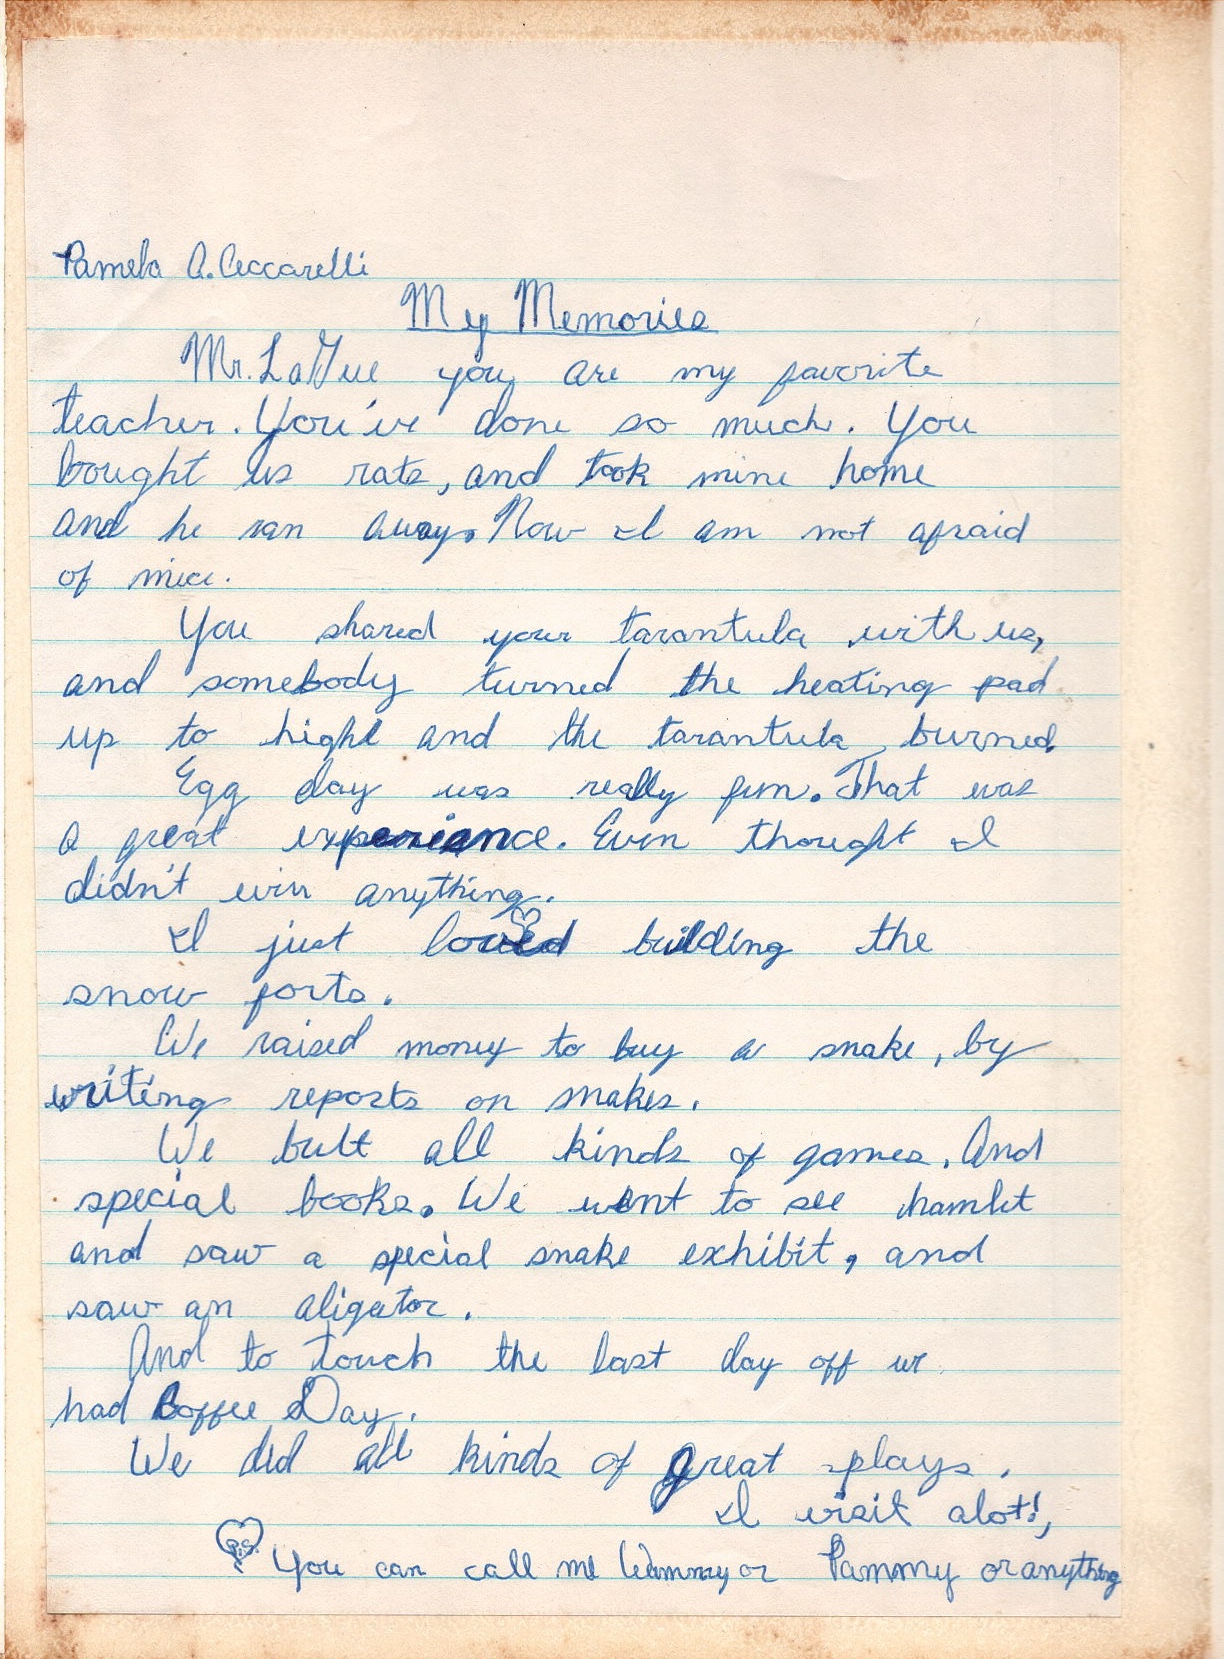 Pamela A. Ceccarelli
My Memories
Mr. LaGue you are my favorite
teacher. You've done so much. You
bought us rats, and took mine home
and he ran away. Now I am not afraid
of mice.
You shared your tarantula with us,
and somebody turned the heating pad
up to hight and the tarantula burned.
Egg day was really fun. That was
a great experiance. Even thought I
didn't win anything.
I just loved building the
snow forts.
We raised money to buy a snake, by
writing reports on snakes.
We bult all kinds of games. And
special books. We went to see hamlet
and saw a special snake exhibit, and
saw an aligator.
And to touch the last day off we
had Coffee Day.
We did all kinds of great plays.
I visit alot!,
P.S. You can call me Wammy or Pammy or anything